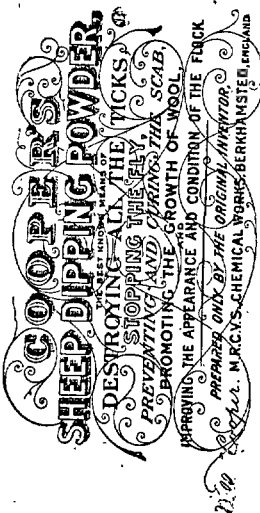 COOPER'S
SHEEP DIPPING POWDER,
THE BEST KNOWN MEANS OF
DESTROYING ALL THE TICKS,
STOPPING THE FLY,
PREVENTING AND CURING THE SCAB,
PROMOTING THE GROWTH OF WOOL,
AND
IMPROVING THE APPEARANCE AND CONDITION OF THE FLOCK
PREPARED ONLY BY THE ORIGINAL INVENTOR,
Cooper. M.R.C.V.S. CHEMICAL WORKS, BERKHAMSTED, ENGLAND.